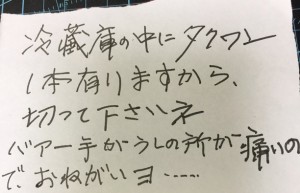 冷蔵庫の中にタクワン
1本有りますから、
切って下さいネ
バアー手がうしの所が痛いの
で、おねがいヨ……